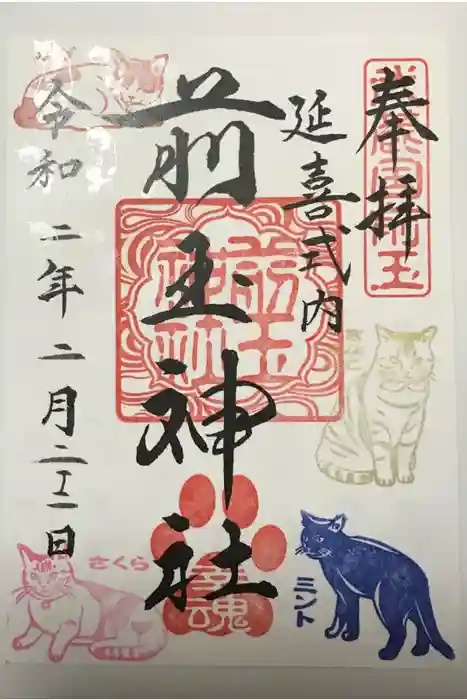 奉拝
延喜式内
前玉神社
令和二年二月二十二日
前玉神社
幸魂
さくら
ミント